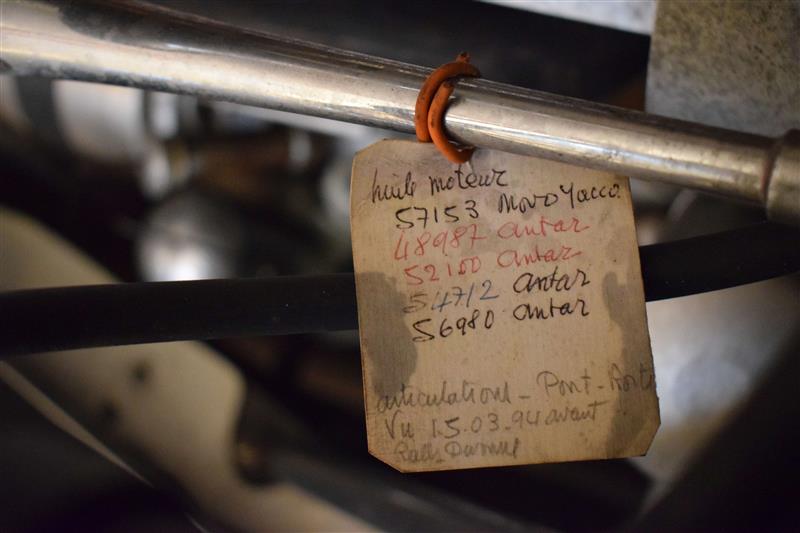 huile moteur
57153 Movo Yacco
48987 antar
52100 antar
54712 antar
56980 antar
articulations - Pont -
Vu 15.03.94 avant